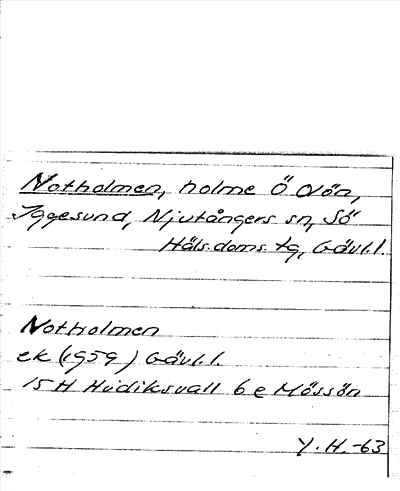 Notholmen, holme Ö Olön,
Iggesund, Njutångers sn, Sö
Häls. doms. tg, Gävl.l.
Notholmen
ek (1959) Gävl.l.
15 H Hudiksvall 6 e Mössön
Y.H.-63